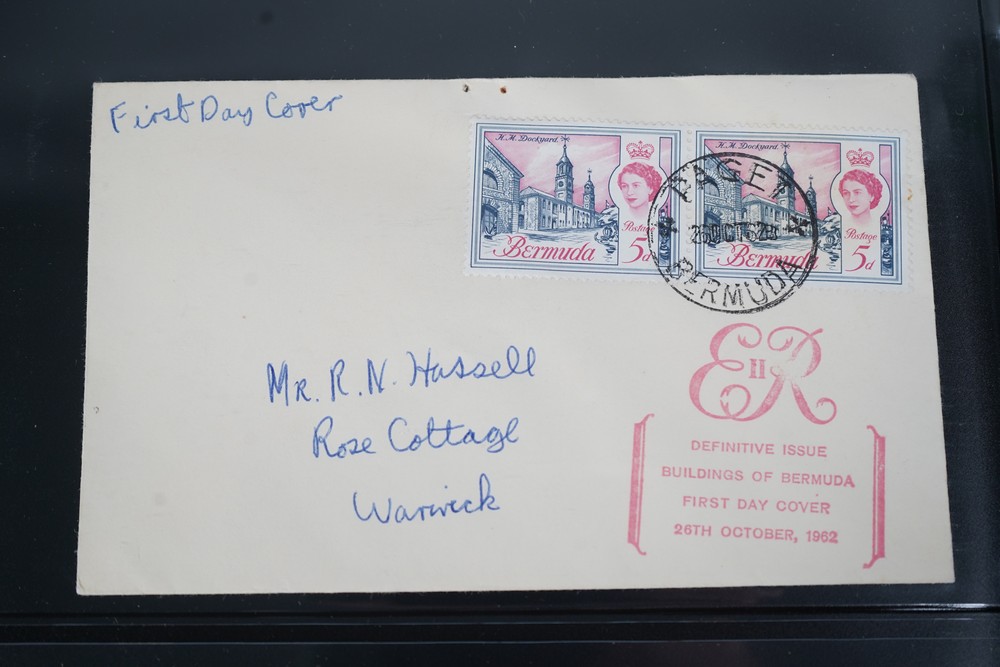 First Day Cover
H.M. Dockyard.
Postage
Bermuda 5d
H.M. Dockyard.
Postage
Bermuda 5d
PAGET
26 OCT 62
BERMUDA
Mr. R. N. Hassell
Rose Cottage
Warwick
E II R
DEFINITIVE ISSUE
BUILDINGS OF BERMUDA
FIRST DAY COVER
26TH OCTOBER, 1962